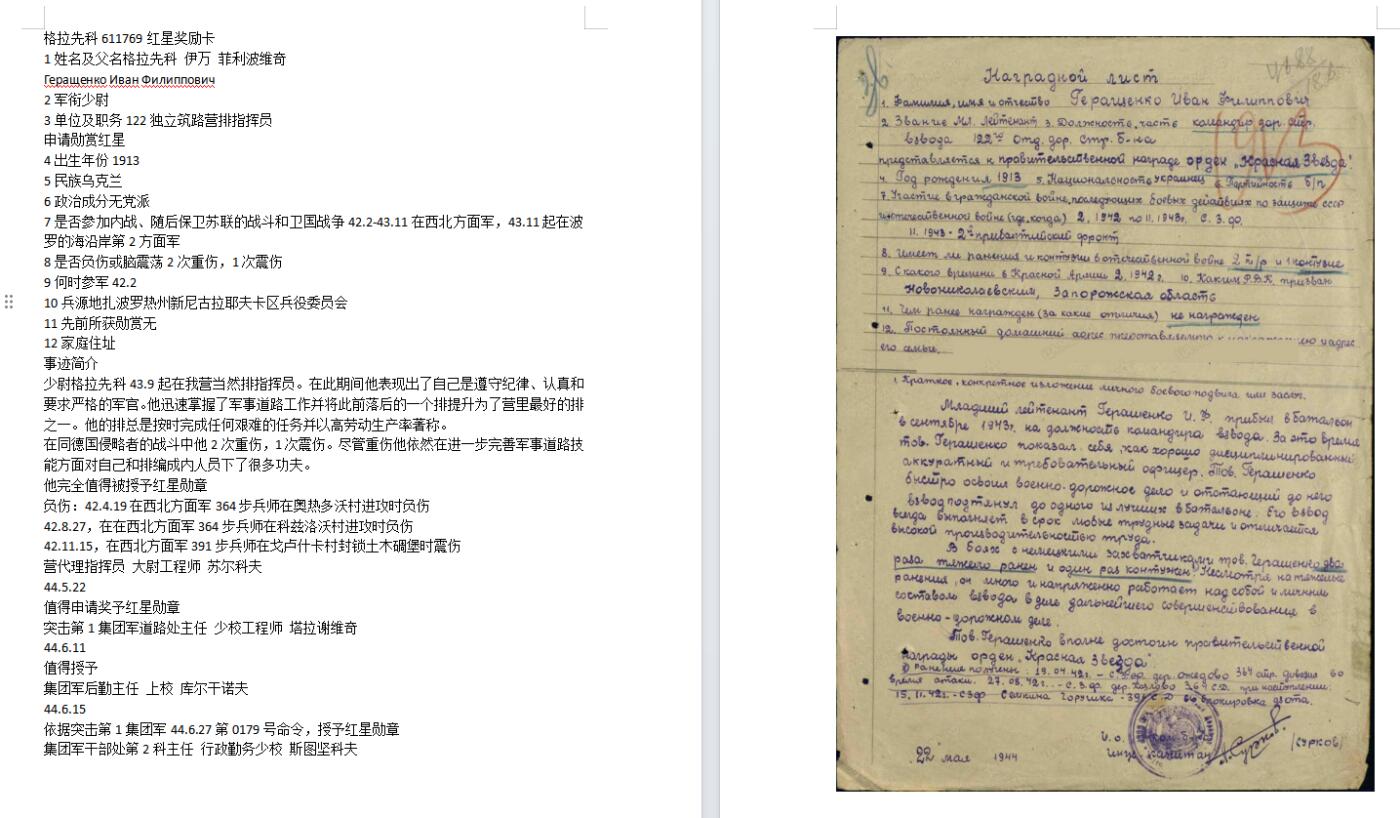 格拉先科 611769 红星奖励卡
1 姓名及父名格拉先科 伊万 菲利波维奇
Геращенко Иван Филиппович
2 军衔少尉
3 单位及职务 122 独立筑路营排指挥员
申请勋赏红星
4 出生年份 1913
5 民族乌克兰
6 政治成分无党派
7 是否参加内战、随后保卫苏联的战斗和卫国战争 42.2-43.11 在西北方面军，43.11 起在波
罗的海沿岸第 2 方面军
8 是否负伤或脑震荡 2 次重伤，1 次震伤
9 何时参军 42.2
10 兵源地扎波罗热州新尼古拉耶夫卡区兵役委员会
11 先前所获勋赏无
12 家庭住址
事迹简介
少尉格拉先科 43.9 起在我营当然排指挥员。在此期间他表现出了自己是遵守纪律、认真和
要求严格的军官。他迅速掌握了军事道路工作并将此前落后的一个排提升为了营里最好的排
之一。他的排总是按时完成任何艰难的任务并以高劳动生产率著称。
在同德国侵略者的战斗中他 2 次重伤，1 次震伤。尽管重伤他依然在进一步完善军事道路技
能方面对自己和排编成内人员下了很多功夫。
他完全值得被授予红星勋章
负伤：42.4.19 在西北方面军 364 步兵师在奥热多沃村进攻时负伤
42.8.27，在在西北方面军 364 步兵师在科兹洛沃村进攻时负伤
42.11.15，在西北方面军 391 步兵师在戈卢什卡村封锁土木碉堡时震伤
营代理指挥员 大尉工程师 苏尔科夫
44.5.22
值得申请奖予红星勋章
突击第 1 集团军道路处主任 少校工程师 塔拉谢维奇
44.6.11
值得授予
集团军后勤主任 上校 库尔干诺夫
44.6.15
依据突击第 1 集团军 44.6.27 第 0179 号命令，授予红星勋章
集团军干部处第 2 科主任 行政勤务少校 斯图坚科夫
Наградной лист
1. Фамилия, имя и отчество Геращенко Иван Филиппович
2. Звание Мл. лейтенант 3. Должность, часть командир дор.
взвода 122го отд. дор. стр. б-на
представляется к правительственной награде орден „Красная Звезда"
4. Год рождения 1913 5. Национальность украинец 6. Партийность б/п
7. Участие в гражданской войне, последующих боевых действиях по защите СССР
и отечественной войне (где, когда) 2. 1942 по 11. 1943г. С. З. Ф.
11. 1943 - 2й прибалтийский фронт
8. Имеет ли ранения и контузии в отечественной войне 2 т/р и 1 контузие
9. С какого времени в Красной Армии 2. 1942 г. 10. Каким Р.В.К. призван
Новониколаевским, Запорожская область
11. Чем ранее награжден (за какие отличия) не награжден
12. Постоянный домашний адрес представляемого к и адрес
его семьи.
1. Краткое, конкретное изложение личного боевого подвига или заслуг.
Младший лейтенант Геращенко И. Ф. прибыл в батальон
в сентябре 1943г. на должность командира взвода. За это время
тов. Геращенко показал себя, как хорошо дисциплинированный
аккуратный и требовательный офицер. Тов. Геращенко
быстро освоил военно-дорожное дело и отстающий до него
взвод подтянул до одного из лучших в батальоне. Его взвод
всегда выполняет в срок любые трудные задачи и отличается
высокой производительностью труда.
В боях с немецкими захватчиками тов. Геращенко два
раза тяжело ранен и один раз контужен. Несмотря на тяжелые
ранения, он много и напряженно работает над собой и личным
составом взвода в деле дальнейшего совершенствование в
военно-дорожном деле.
Тов. Геращенко вполне достоин правительственной
награды орден „Красная Звезда".
Ранения получены: 19. 04. 42 г. - С.З.Ф. дер. Ожедово 364 стр. дивизия во
время атаки. 27. 08. 42 г. - С. З. Ф. дер. Козлово 364 С.Д. при наступлении.
15. 11. 42 г. - СЗФ Горушка - 391 С.Д блокировка дзота.
И. о. ком. б-на
инж. капитан (Сурков)
22 мая 1944